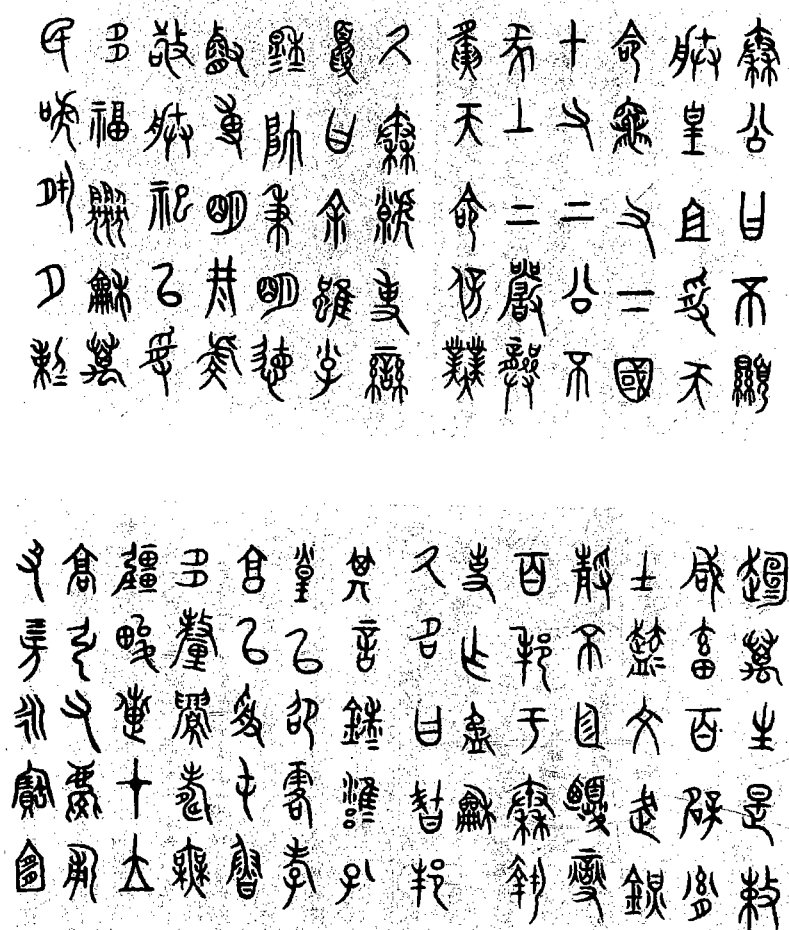 秦公曰不顯
朕皇且受天
命竈又下國
十又二公不
㒸上二嚴龏
夤天命保業
氒秦虩事蠻
夏曰余雖小子
穆=帥秉明德
叡尃明井虔
敬朕祀以受
多福協龢萬
民唬夙夕剌=
趄=萬生是敕
咸畜百辟胤
士文武鎮
靜不廷燮
百邦于秦執
事乍盄龢
氒名曰邦
其音雍=孔
煌以卲零孝
享以受屯魯
多釐眉壽無
疆畯疐才立
高引又慶匍
又四方永寶宜